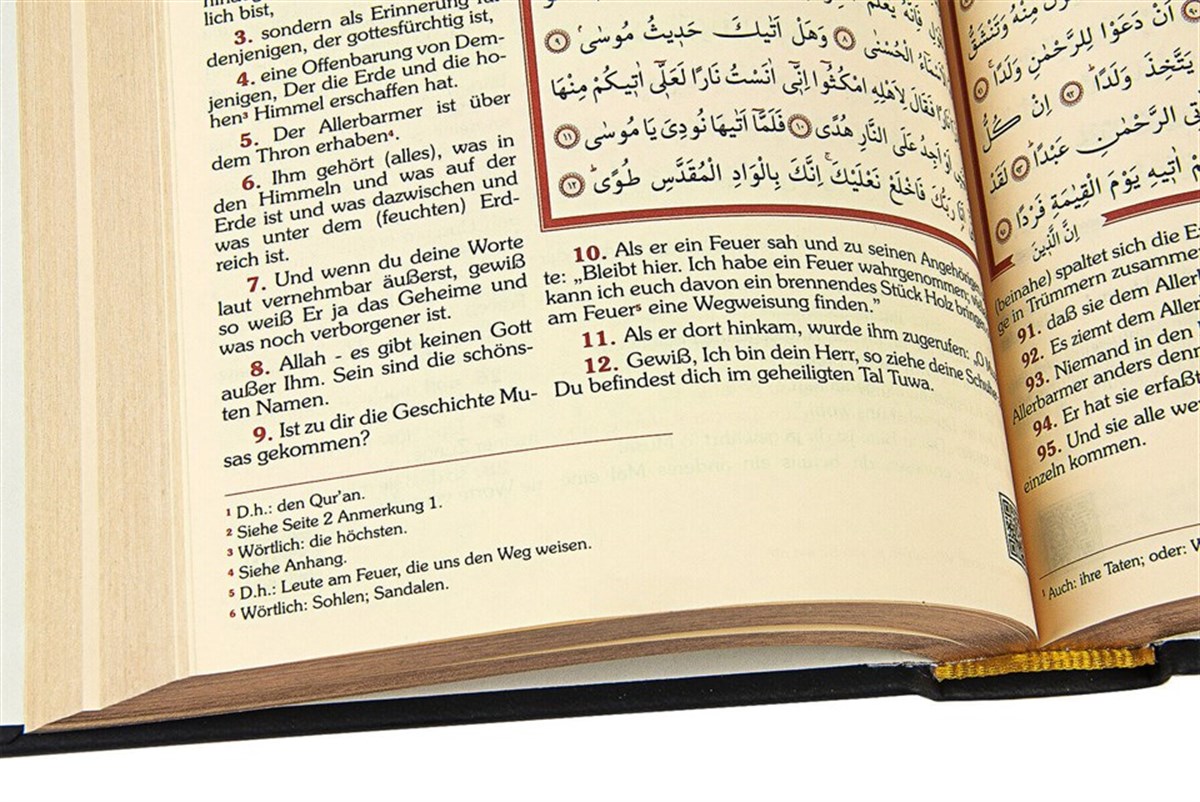 lich bist,
3. sondern als Erinnerung für
denjenigen, der gottesfürchtig ist,
4. eine Offenbarung von Dem-
jenigen, Der die Erde und die ho-
hen³ Himmel erschaffen hat.
5. Der Allerbarmer ist über
dem Thron erhaben⁴.
6. Ihm gehört (alles), was in
den Himmeln und was auf der
Erde ist und was dazwischen und
was unter dem (feuchten) Erd-
reich ist.
7. Und wenn du deine Worte
laut vernehmbar äußerst, gewiß
so weiß Er ja das Geheime und
was noch verborgener ist.
8. Allah - es gibt keinen Gott
außer Ihm. Sein sind die schöns-
ten Namen.
9. Ist zu dir die Geschichte Mu-
sas gekommen?
الْاَسْمَٓاءُ الْحُسْنٰى ﴿٨﴾ وَهَلْ اَتٰيكَ حَد۪يثُ مُوسٰىۢ ﴿٩﴾
فَقَالَ لِاَهْلِهِ امْكُثُٓوا اِنّ۪ٓي اٰنَسْتُ نَارًا لَعَلّ۪ٓي اٰت۪يكُمْ مِنْهَا
اَوْ اَجِدُ عَلَى النَّارِ هُدًى ﴿١٠﴾ فَلَمَّٓا اَتٰيهَا نُودِيَ يَا مُوسٰى ﴿١١﴾
رَبُّكَ فَاخْلَعْ نَعْلَيْكَۚ اِنَّكَ بِالْوَادِ الْمُقَدَّسِ طُوًىۜ ﴿١٢﴾
10. Als er ein Feuer sah und zu seinen Angehörigen
te: „Bleibt hier. Ich habe ein Feuer wahrgenommen;
kann ich euch davon ein brennendes Stück Holz bringen
am Feuer⁵ eine Wegweisung finden.”
11. Als er dort hinkam, wurde ihm zugerufen: „O
12. Gewiß, Ich bin dein Herr, so ziehe deine
Du befindest dich im geheiligten Tal Tuwa.
1 D.h.: den Qur’an.
2 Siehe Seite 2 Anmerkung 1.
3 Wörtlich: die höchsten.
4 Siehe Anhang.
5 D.h.: Leute am Feuer, die uns den Weg weisen.
6 Wörtlich: Sohlen; Sandalen.
اَنْ دَعَوْا لِلرَّحْمٰنِ وَلَدًاۚ ﴿٩١﴾
يَتَّخِذَ وَلَدًاۜ ﴿٩٢﴾ اِنْ كُلُّ
الرَّحْمٰنِ عَبْدًاۜ ﴿٩٣﴾ لَقَدْ
اٰت۪يهِ يَوْمَ الْقِيٰمَةِ فَرْدًا
اِنَّ الَّذ۪ينَ
(beinahe) spaltet sich die
ge in Trümmern zusammen
91. daß sie dem
92. Es ziemt dem
93. Niemand in den
Allerbarmer anders denn
94. Er hat sie erfaßt
95. Und sie alle
einzeln kommen.
1 Auch: ihre Taten; oder: